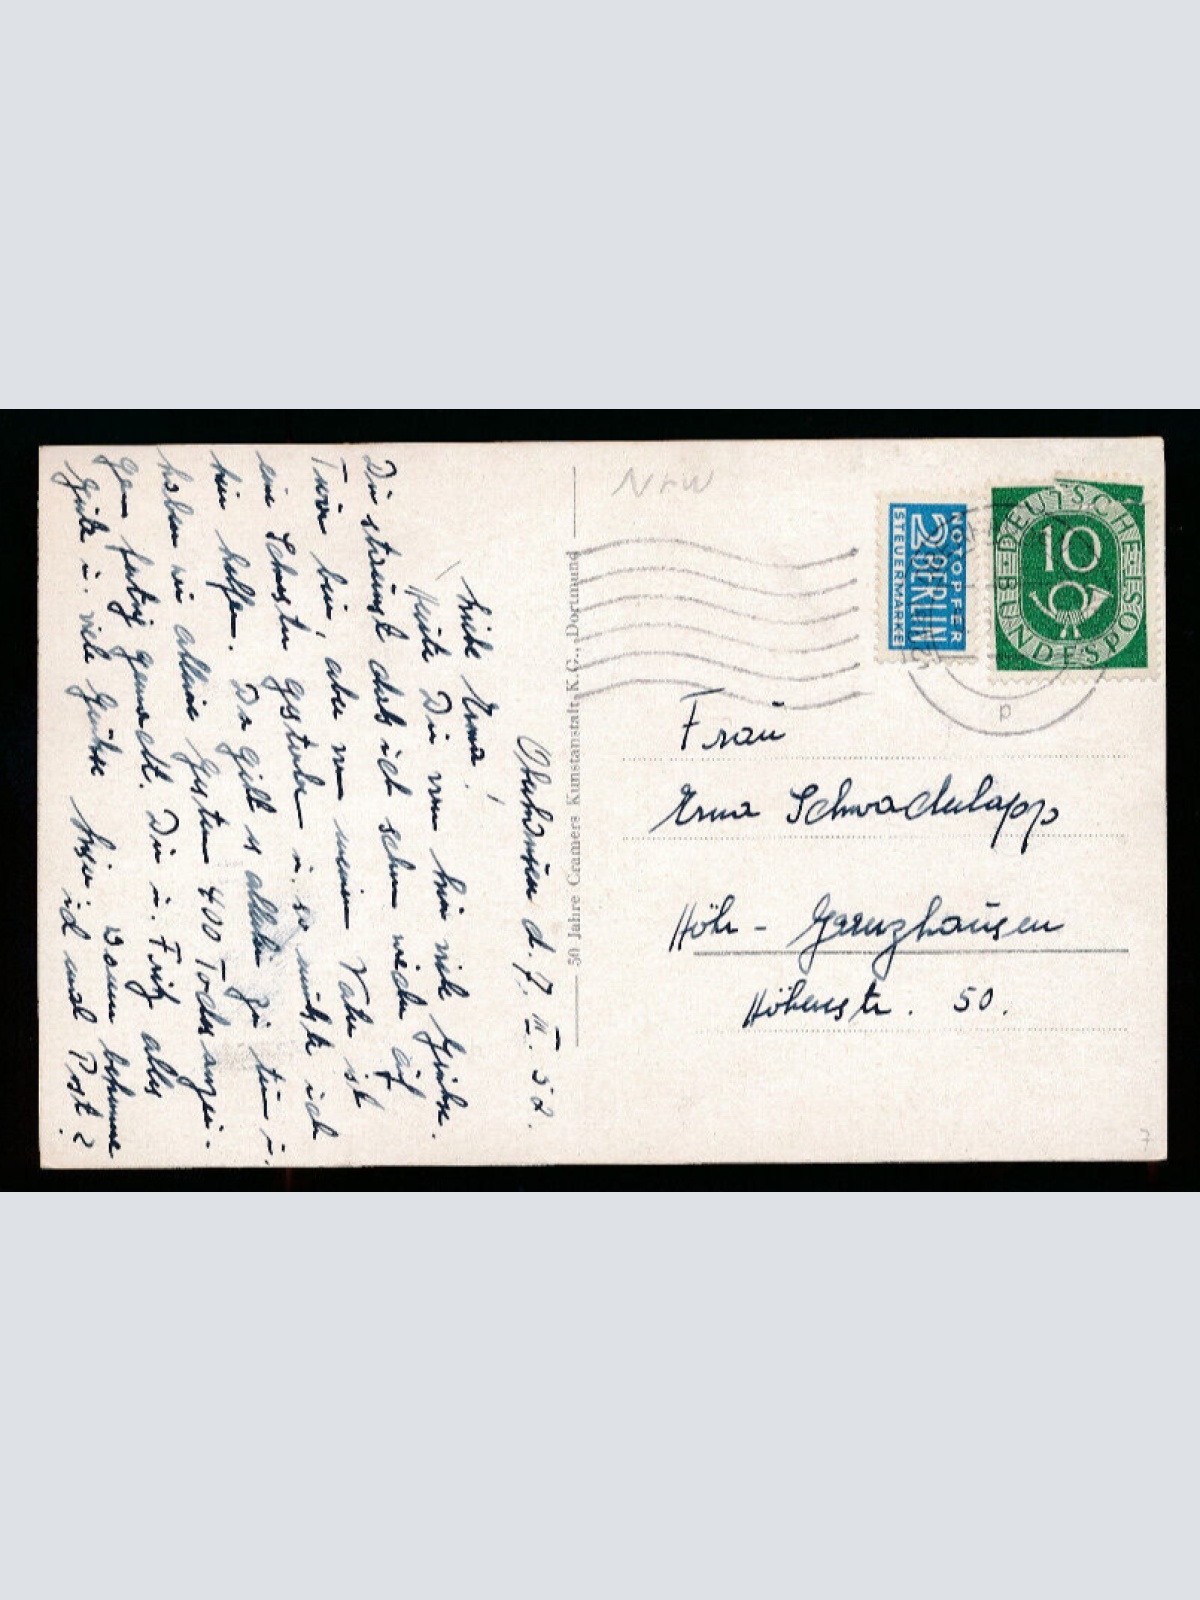 Oberhausen d. 7. III. 52.
Liebe Erna!
Heute Dir von hier viele Grüsse.
Du staunst daß ich schon wieder auf
Tour bin, aber von meinem Vater ist
eine Schwester gestorben u. so mußte ich
hin helfen. Da gibt es allerlei zu tun u.
haben wir alleine gestern 400 Todesanzei-
gen fertig gemacht. Dir u. Fritz alles
Gute u. viele Grüsse Wann bekomme
ich mal Post?
50 Jahre Cramers Kunstanstalt K.G., Dortmund
NRW
NOTOPFER
2 BERLIN
STEUERMARKE
DEUTSCHE
BUNDESPOST
10
p
Frau
Erna Schwaderlapp
Höhr - Grenzhausen
Höhenstr. 50.
7